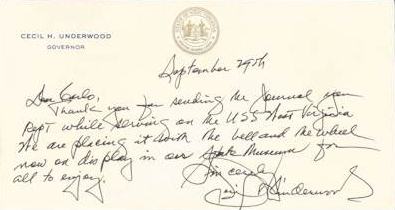 CECIL H. UNDERWOOD
GOVERNOR
September 29th
Dear Carlo,
Thank you for sending the Journal you
kept while serving on the USS West Virginia
We are placing it with the bell and the wheel
now on display in our State Museum for
all to enjoy.
Sincerely
Cecil H Underwood